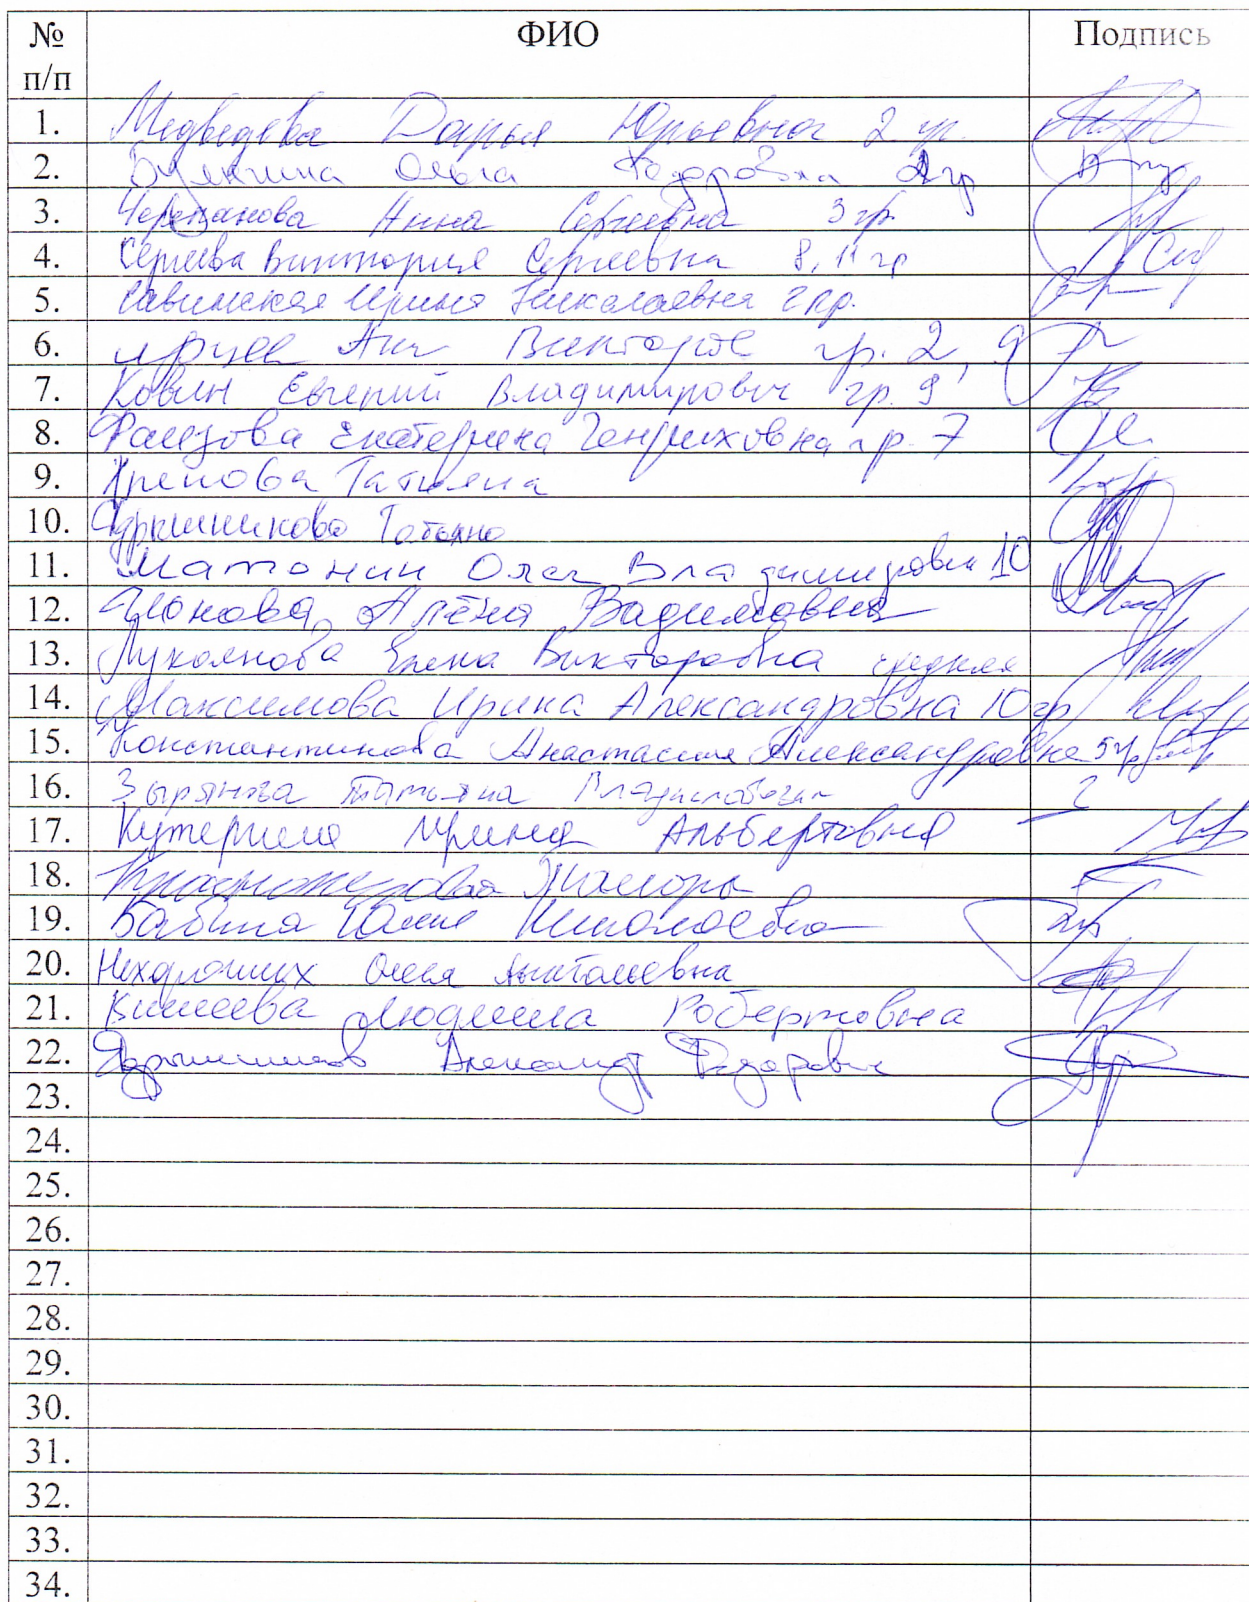 № п/п ФИО Подпись
1. Медведева Дарья Юрьевна 2 гр.
2. Ольга Федоровна 2гр
3. Черепанова Анна Сергеевна 3 гр.
4. Сергеева Виктория Сергеевна 8, 11 гр
5. Савинская Ирина Николаевна 2 гр.
6. гр. 2, 9
7. Ковин Евгений Владимирович гр. 9
8. Фаизова Екатерина Генриховна гр. 7
9. Татьяна
10. Ядрышникова Татьяна
11. Матонин Олег Владимирович 10
12. Алёна Вадимовна
13. Лукоянова Елена Викторовна средняя
14. Максимова Ирина Александровна 10 гр
15. Константинова Анастасия Александровна 5 гр
16. Зырянова Татьяна Владиславовна
17. Кутергина Ирина Альбертовна
18.
19. Бабина Юлия Николаевна
20. Нехороших Олеся Анатольевна
21. Людмила Робертовна
22. Ядрышников Александр Федорович
23.
24.
25.
26.
27.
28.
29.
30.
31.
32.
33.
34.